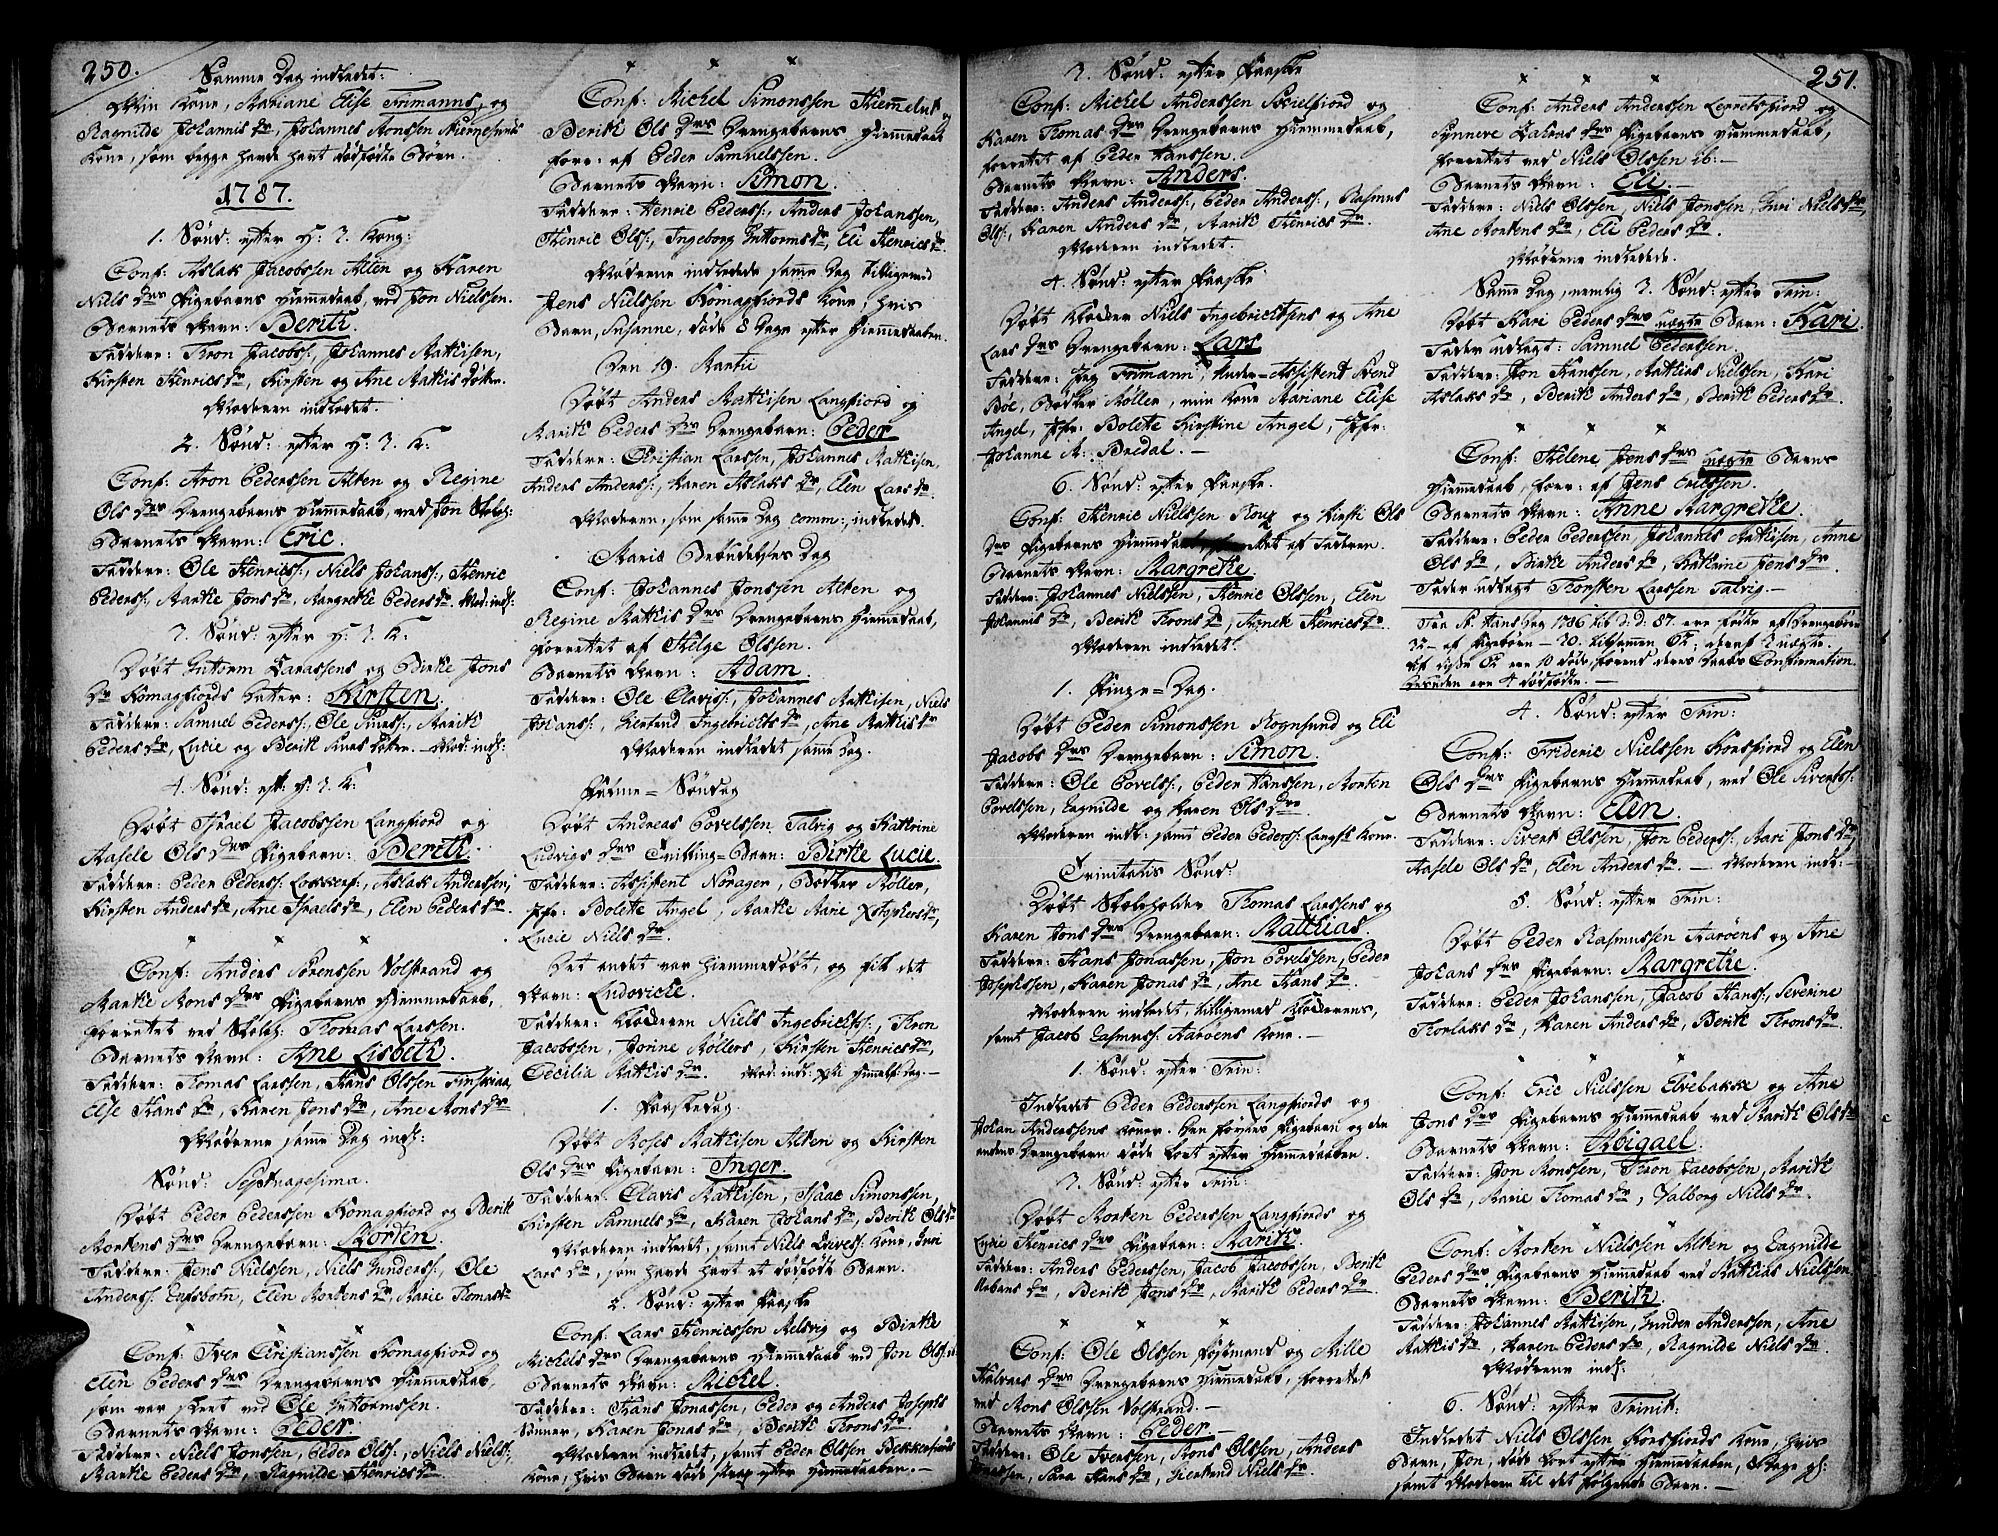 250.
Samme Dag indledet:
Min Kone, Mariane Elise Frimanns, og
Ragnilde Johannis Dr, Johannes Aronssen
Kone, som begge havde havt dødfødte Børn.
1787.
1. Sønd: efter H: 3. Kong:
Conf: Aslak Jacobssen Alten og Karen
Niels Drs Pigebarns Hiemmedaab, ved Jon Nielssen.
Barnets Navn: Berith.
Faddere: Thron Jacobss:, Johannes Mathisen,
Kirsten Henrics Dr, Kirsten og Ane Mathis Døtter.
Moderen indledet.
2. Sønd: efter H: 3. K:
Conf: Aron Pederssen Alten og Regine
Ols Drs Drengebarns Hiemmedaab, ved Jon Skoleh:
Barnets Navn: Eric.
Faddere: Ole Henrics:, Niels Johans:, Henric
Pederss:, Marthe Jons Dr, Margrethe Peders Dr. Mod: indl:
3. Sønd: efter H: 3. K:
Døbt Guttorm Zarassens og Birthe Jons
Dr Komagfiords Datter: Kirsten.
Faddere: Samuel Pederss:, Ole Knuss:, Marith
Peders Dr, Lucie og Berith Knus Døtter. Mod: indl:
4. Sønd: eft: H: 3. K:
Døbt Israel Jacobssen Langfiord og
Aasele Ols Drs Pigebarn: Berith.
Faddere: Peder Pederss: Lokkerf:, Aslak Anderssen,
Kirsten Anders Dr, Ane Israels Dr, Elen Peders Dr.
x x x
Conf: Anders Sørenssen Wolstrand og
Marthe Mons Drs Pigebarns Hiemmedaab,
forrettet ved Skoleh: Thomas Larssen.
Barnets Navn: Ane Lisbeth.
Faddere: Thomas Larssen, Hans Olssen
Else Hans Dr, Karen Jens Dr, Ane Mons Dr
Mødrene samme Dag indl:
Sønd: Septuagesima.
Døbt Peder Pederssen Komagfiord og Berith
Mortens Drs Drengebarn: Morten.
Faddere: Jens Nielssen, Niels Gunderss:, Ole
Anderss: Elen Mortens Dr, Marie Thomas Dr
x x x
Conf: Iver Christianssen Komagfiord og
Elen Peders Drs Drengebarns Hiemmedaab,
som var skeet ved Ole Guttormssen.
Barnets Navn: Peder.
Faddere: Niels Jonssen, Peder Olss:, Niels Nielss:,
Marthe Peders Dr, Ragnilde Henrics Dr
x x x
Conf: Michel Simonssen og
Berith Ols Drs Drengebarns Hiemmedaab
forr: af Peder Samuelssen.
Barnets Navn: Simon.
Faddere: Henric Pederss:, Anders Johanssen,
Henric Olss:, Ingeborg Guttorms Dr, Eli Henrics Dr.
Mødrene indledede samme Dag tilligemed
Jens Nielssen Komagfiords Kone, hvis
Barn, Susanne, døde 8 Dage efter Hiemmedaaben.
Den 19. Martii
Døbt Anders Mathisen Langfiord og
Marith Peders Drs Drengebarn: Peder
Faddere: Christian Larssen, Johannes Mathisen,
Anders Anderss:, Karen Aslaks Dr, Elen Lars Dr.
Moderen, som samme Dag comm:, indledet.
Mariæ Bebudelses Dag
Conf: Johannes Jonssen Alten og
Regine Mathis Drs Drengebarns Hiemmedaab,
forrettet af Helge Olssen.
Barnets Navn: Adam.
Faddere: Ole Claviss:, Johannes Mathisen, Niels
Johans:, Giertrud Ingebrichts Dr, Ane Mathis Dr
Moderen indledet samme Dag.
Palme-Søndag
Døbt Andreas Povelssen Talvig og Kathrine
Ludvigs Drs Tvilling-Barn: Birthe Lucie.
Faddere: Assistent Norager, Bødker Møller,
Jfr: Bolette Angel, Marthe Marie Xstophers Dr,
Lucie Niels Dr.
Det andet var hiemmedøbt, og fik det
Navn: Ludoviche.
Faddere: Klokkeren Niels Ingebrichtss:, Thron
Jacobssen, Jorine Møllers, Kirsten Henrics Dr,
Cecilia Mathis Dr. Mod: ind:
1. Paaskedag.
Døbt Moses Mathisen Alten og Kirsten
Ols Drs Pigebarn: Inger.
Faddere: Clavis Mathisen, Isaac Simonssen,
Kirsten Samuels Dr, Karen Johans Dr, Berith Ols Dr
Moderen indledet, samt Niels Kone, Guri
Lars Dr, som havde havt et dødfødt Barn.
2. Sønd: efter Paaske
Conf: Lars Henricssen Melsvig og Birthe
Michels Drs Drengebarns Hiemmedaab ved Jon Olss:
Barnets Navn: Michel.
Faddere: Hans Jonassen, Peder og Anders Josephs
Sønner, Karen Jonas Dr, Berith Throns Dr
Moderen indledet, samt Peder Olssen Bekkerfiords
Kone, hvis Barn døde strax efter Hiemmedaaben.
3. Sønd: efter Paaske
Conf: Michel Anderssen og
Karen Thomas Drs Drengebarns Hiemmedaab,
forrettet af Peder Hanssen.
Barnets Navn: Anders.
Faddere: Anders Anderss:, Peder Anderss:, Rasmus
Olss:, Karen Anders Dr, Marith Henrics Dr.
Moderen indledet.
4. Sønd: efter Paaske
Døbt Klokker Niels Ingebrichtsens og Ane
Lars Drs Drengebarn: Lars
Faddere: Jeg Frimann, Under-Assistent Svend
Bøe, Bødker Møller, min Kone Mariane Elise
Angel, Jfr: Bolette Kirstine Angel, Jfr:
Johanne M: Bredal.
6. Sønd: efter Paaske.
Conf: Henric Nielssen og Kirsti Ols
Drs Pigebarns Hiemmedaab af Faderen.
Barnets Navn: Margrethe.
Faddere: Johannes Nielssen, Henric Olssen, Elen
Johannis Dr, Berith Throns Dr, Henrics Dr.
Moderen indledet.
1. Pinze-Dag.
Døbt Peder Simonssen Rognsund og Eli
Jacobs Drs Drengebarn: Simon.
Faddere: Ole Povelss:, Peder Hanssen, Morten
Povelssen, Ragnilde og Karen Ols Drs.
Moderen indl: samt Peder Pederss: Langf: Kone.
Trinitatis Sønd:
Døbt Skoleholder Thomas Larssens og
Karen Jons Drs Drengebarn: Matthias.
Faddere: Hans Jonassen, Jon Povelssen, Peder
Josephssen, Karen Jonas Dr, Ane Hans Dr.
Moderen indledet, tilligemed Klokkerens,
samt Jacob Rasmuss: Aarøens Kone.
1. Sønd: efter Trin:
Indledet Peder Pederssen Langfiords og
Johan Anderssens Koner. Den førstes Pigebarn og den
andens Drengebarn døde kort efter Hiemmedaaben.
3. Sønd: efter Trin:
Døbt Morten Pederssen Langfiords og
Lucie Henrics Drs Pigebarn: Marith.
Faddere: Anders Pederssen, Jacob Jacobssen, Berith
Dr, Berith Jons Dr, Marith Peders Dr.
x x x
Conf: Ole Olssen og Mille
Halvors Drs Drengebarns Hiemmedaab, forrettet
ved Mons Olssen Wolstrand.
Barnets Navn: Peder.
Faddere: Ole Iverssen, Mons Olssen, Anders
Sara Hans Dr, Giertrud Niels Dr.
251.
x x x
Conf: Anders Anderssen Lerretsfiord og
Synnøve Drs Pigebarns Hiemmedaab,
forrettet ved Niels Olssen ib:
Barnets Navn: Eli.
Faddere: Niels Olssen, Niels Jonssen, Guri Niels Dr,
Ane Mortens Dr, Eli Peders Dr.
Mødrene indledede.
Samme Dag, nemlig 3. Sønd: efter Trin:
Døbt Kari Peders Drs uægte Barn: Kari.
Fader udlagt: Samuel Pederssen.
Faddere: Jon Hanssen, Mathias Nielssen, Kari
Aslaks Dr, Berith Anders Dr, Berith Peders Dr.
x x x
Conf: Helene Jens Drs uægte Barns
Hiemmedaab, forr: af Jens Ericssen.
Barnets Navn: Anne Margrethe.
Faddere: Peder Pederssen, Johannes Mathisen, Anne
Ols Dr, Birthe Anders Dr, Kathrine Jens Dr.
Fader udlagt Thorsten Larssen Talvig.
Fra St. Hans Dag 1786 til d. d. 87. ere fødte af Drengebørn
32 - af Pigebørn - 30. tilsammen 62, deraf 3 uægte.
Af disse 62 ere 10 døde, førend deres Daabs Confirmation.
Desuden ere 4 dødfødde.
4. Sønd: efter Trin:
Conf: Frideric Nielssen Korsfiord og Elen
Ols Drs Pigebarns Hiemmedaab, ved Ole Sivertss:
Barnets Navn: Elen
Faddere: Sivert Olssen, Jon Pederss:, Mari Jons Dr,
Aasele Ols Dr, Elen Anders Dr. Moderen indl:
5. Sønd: efter Trin:
Døbt Peder Rasmussen Aarøens og Ane
Johans Drs Pigebarn: Margrethe.
Faddere: Peder Johanssen, Jacob Hanss:, Severine
Thorlaks Dr, Karen Anders Dr, Berith Throns Dr.
x x x
Conf: Eric Nielssen Elvebakke og Ane
Jons Drs Pigebarns Hiemmedaab ved Marith Ols Dr
Barnets Navn: Abigael.
Faddere: Jon Monssen, Thron Jacobssen, Marith
Ols Dr, Marie Thomas Dr, Valborg Niels Dr.
x x x
Conf: Morten Nielssen Alten og Ragnilde
Peders Drs Pigebarns Hiemmedaab ved Mathias Nielssen
Barnets Navn: Berith.
Faddere: Johannes Mathisen, Gunder Anderssen, Ane
Mathis Dr, Karen Peders Dr, Ragnilde Niels Dr.
Mødrene indl:
6. Sønd: efter Trinit:
Indledet Niels Olssen Korsfiords Kone, hvis
Barn, Jon, døde kort efter Hiemmedaaben,
samt Moderen til det følgende Barn.